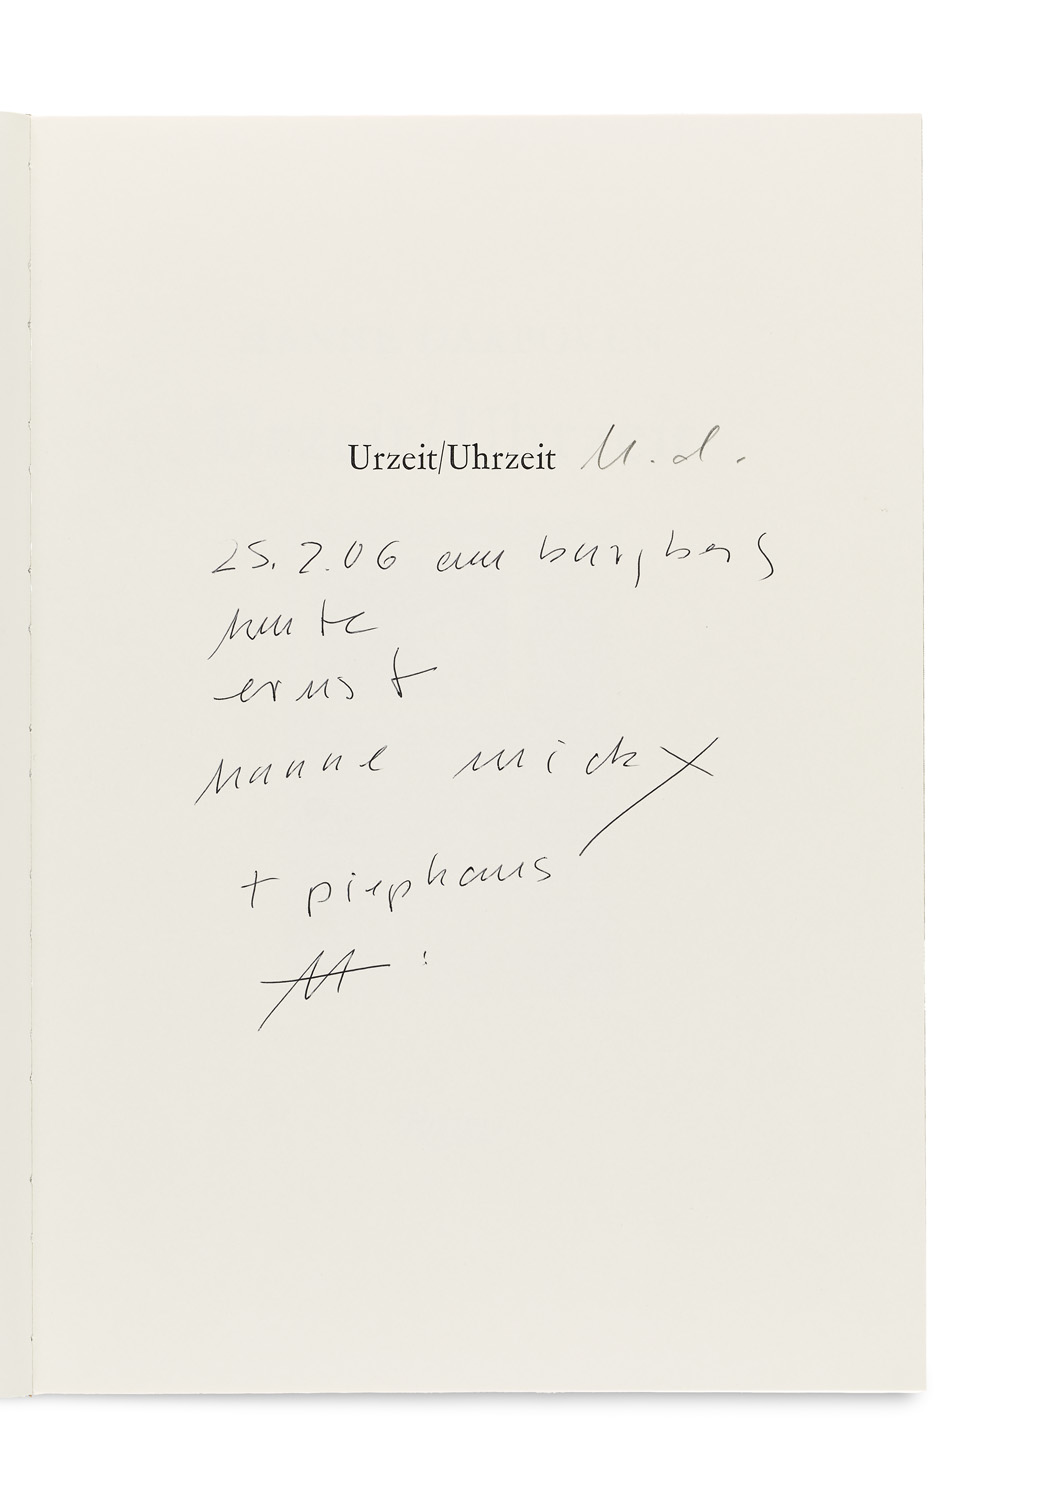 Urzeit/Uhrzeit
25.2.06 am burgberg
heute
ernst
nanne mick
+ piephans